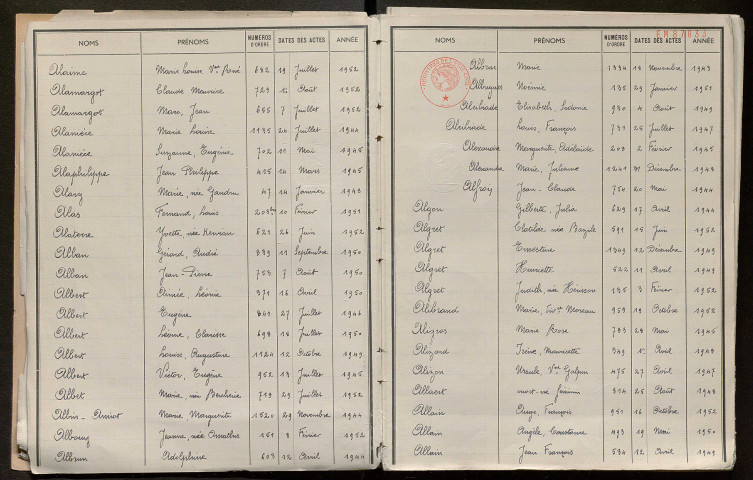 NOMS PRÉNOMS NUMÉROS D'ORDRE DATES DES ACTES ANNÉE
Alaime Marie Louise Vve René 682 19 Juillet 1952
Alamargot Claude Maurice 729 12 Août 1952
Alamargot Marc, Jean 655 7 Juillet 1952
Marie Louise 1135 24 Juillet 1944
Suzanne, Eugénie 702 11 Mai 1945
Alaphilippe Jean Philippe 415 14 Mars 1945
Alary Marie, née 47 14 Janvier 1943
Alas Fernand, Louis 10 Février 1951
Yvette, née 621 26 Juin 1952
Alban Gérard, André 889 11 Septembre 1950
Alban Jean-Pierre 753 7 Août 1950
Albert Aimée, Léonie 371 16 Avril 1950
Albert Eugène 27 Juillet 1946
Albert Léonie, Clarisse 698 18 Juillet 1950
Albert Louise, Augustine 1124 12 Octobre 1949
Albert Victor, Eugène 952 19 Juillet 1945
Albert Marie, née 719 29 Juillet 1952
Albin - Amiot Marie Marguerite 1520 29 Novembre 1944
Jeanne, née 151 8 Février 1952
Adolphine 603 12 Avril 1944
NOMS PRÉNOMS NUMÉROS D'ORDRE DATES DES ACTES ANNÉE
Marie 1334 18 Novembre 1943
Noémie 135 29 Janvier 1951
Alcibiade Elisabeth, Sidonie 930 4 Août 1949
Alcibiade Louis, François 731 25 Juillet 1947
Alexandre Marguerite, Adélaïde 203 2 Février 1945
Alexandre Marie, Julienne 1241 31 Décembre 1948
Alfroy Jean-Claude 754 20 Mai 1944
Algon Gilberte, Julia 629 17 Avril 1944
Algret Clotilde née Bazile 591 15 Juin 1952
Algret Ernestine 1349 12 Décembre 1949
Algret Henriette 522 11 Avril 1949
Algret Judith, née 135 3 Février 1952
Alibrand Marie, Vve Moreau 959 19 Octobre 1952
Aligros Marie Rose 783 28 Mai 1945
Alizard Irène, Mauricette 349 1er Avril 1948
Alizon Ursule Vve Galpin 475 27 Avril 1947
mort-né féminin 914 25 Août 1948
Allain Ange, François 951 16 Octobre 1952
Allain Angèle, Constance 493 19 Mai 1950
Allain Jean François 534 12 Avril 1949